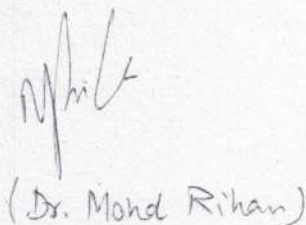 (Dr. Mohd Rihan)